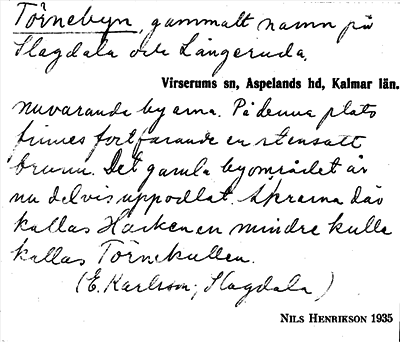 Törnebyn, gammalt namn på
Slagdala och Långeruda.
Virserums sn, Aspelands hd, Kalmar län.
nuvarande byarna. På denna plats
finnes fortfarande en stensatt
brunn. Det gamla byområdet är
nu delvis uppodlat. Åkrarna där
kallas Hacken en mindre kulle
kallas Törnekullen.
(E. Karlsson, Slagdala)
NILS HENRIKSON 1935